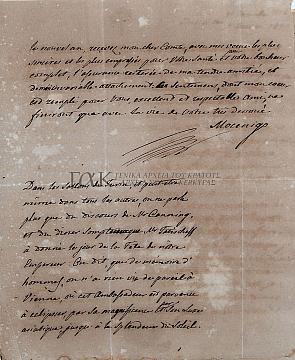 le nouvel an, recevez mon cher Comte, avec mes vœux les plus
sincères et les plus empressés pour Votre Santé, et votre bonheur
complet, l'assurance réitérée de ma tendre amitié, et
de mon invariable attachement. Ces sentimens, dont mon cœur
est rempli pour Vous excellent et respectable Ami, ne
finiront qu'avec la vie de Votre très dévoué
Mocenigo
ΓΑΚ ΓΕΝΙΚΑ ΑΡΧΕΙΑ ΤΟΥ ΚΡΑΤΟΥΣ
ΚΕΡΚΥΡΑΣ
Dans les Sallons de Turin, et peut-être
même dans tous les autres on ne parle
plus que du discours de Mr Canning,
et du diner Somptueux que Mr Tatischeff
a donné le jour de la fête de notre
Empereur. On dit que de mémoire d'
hommes, on n'a rien vu de pareil à
Vienne, où cet Ambassadeur est parvenu
à éclipser par sa magnificence et son luxe
asiatique jusqu'à la Splendeur du Soleil.